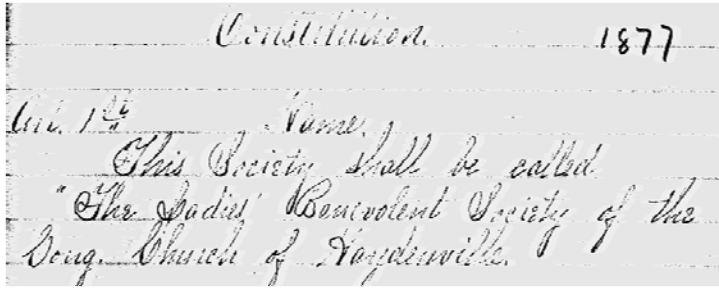 Constitution. 1877
Art. 1st Name.
This Society shall be called
"The Ladies' Benevolent Society of the
Cong. Church of Haydenville.